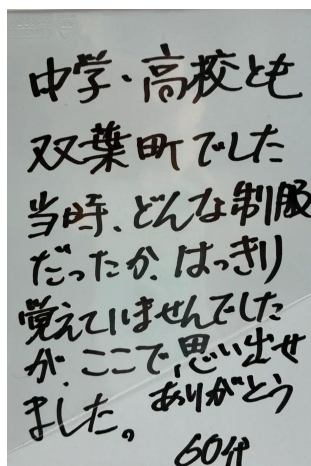 中学・高校とも
双葉町でした
当時、どんな制服
だったか、はっきり
覚えていませんでした
が、ここで思い出せ
ました。ありがとう
60代